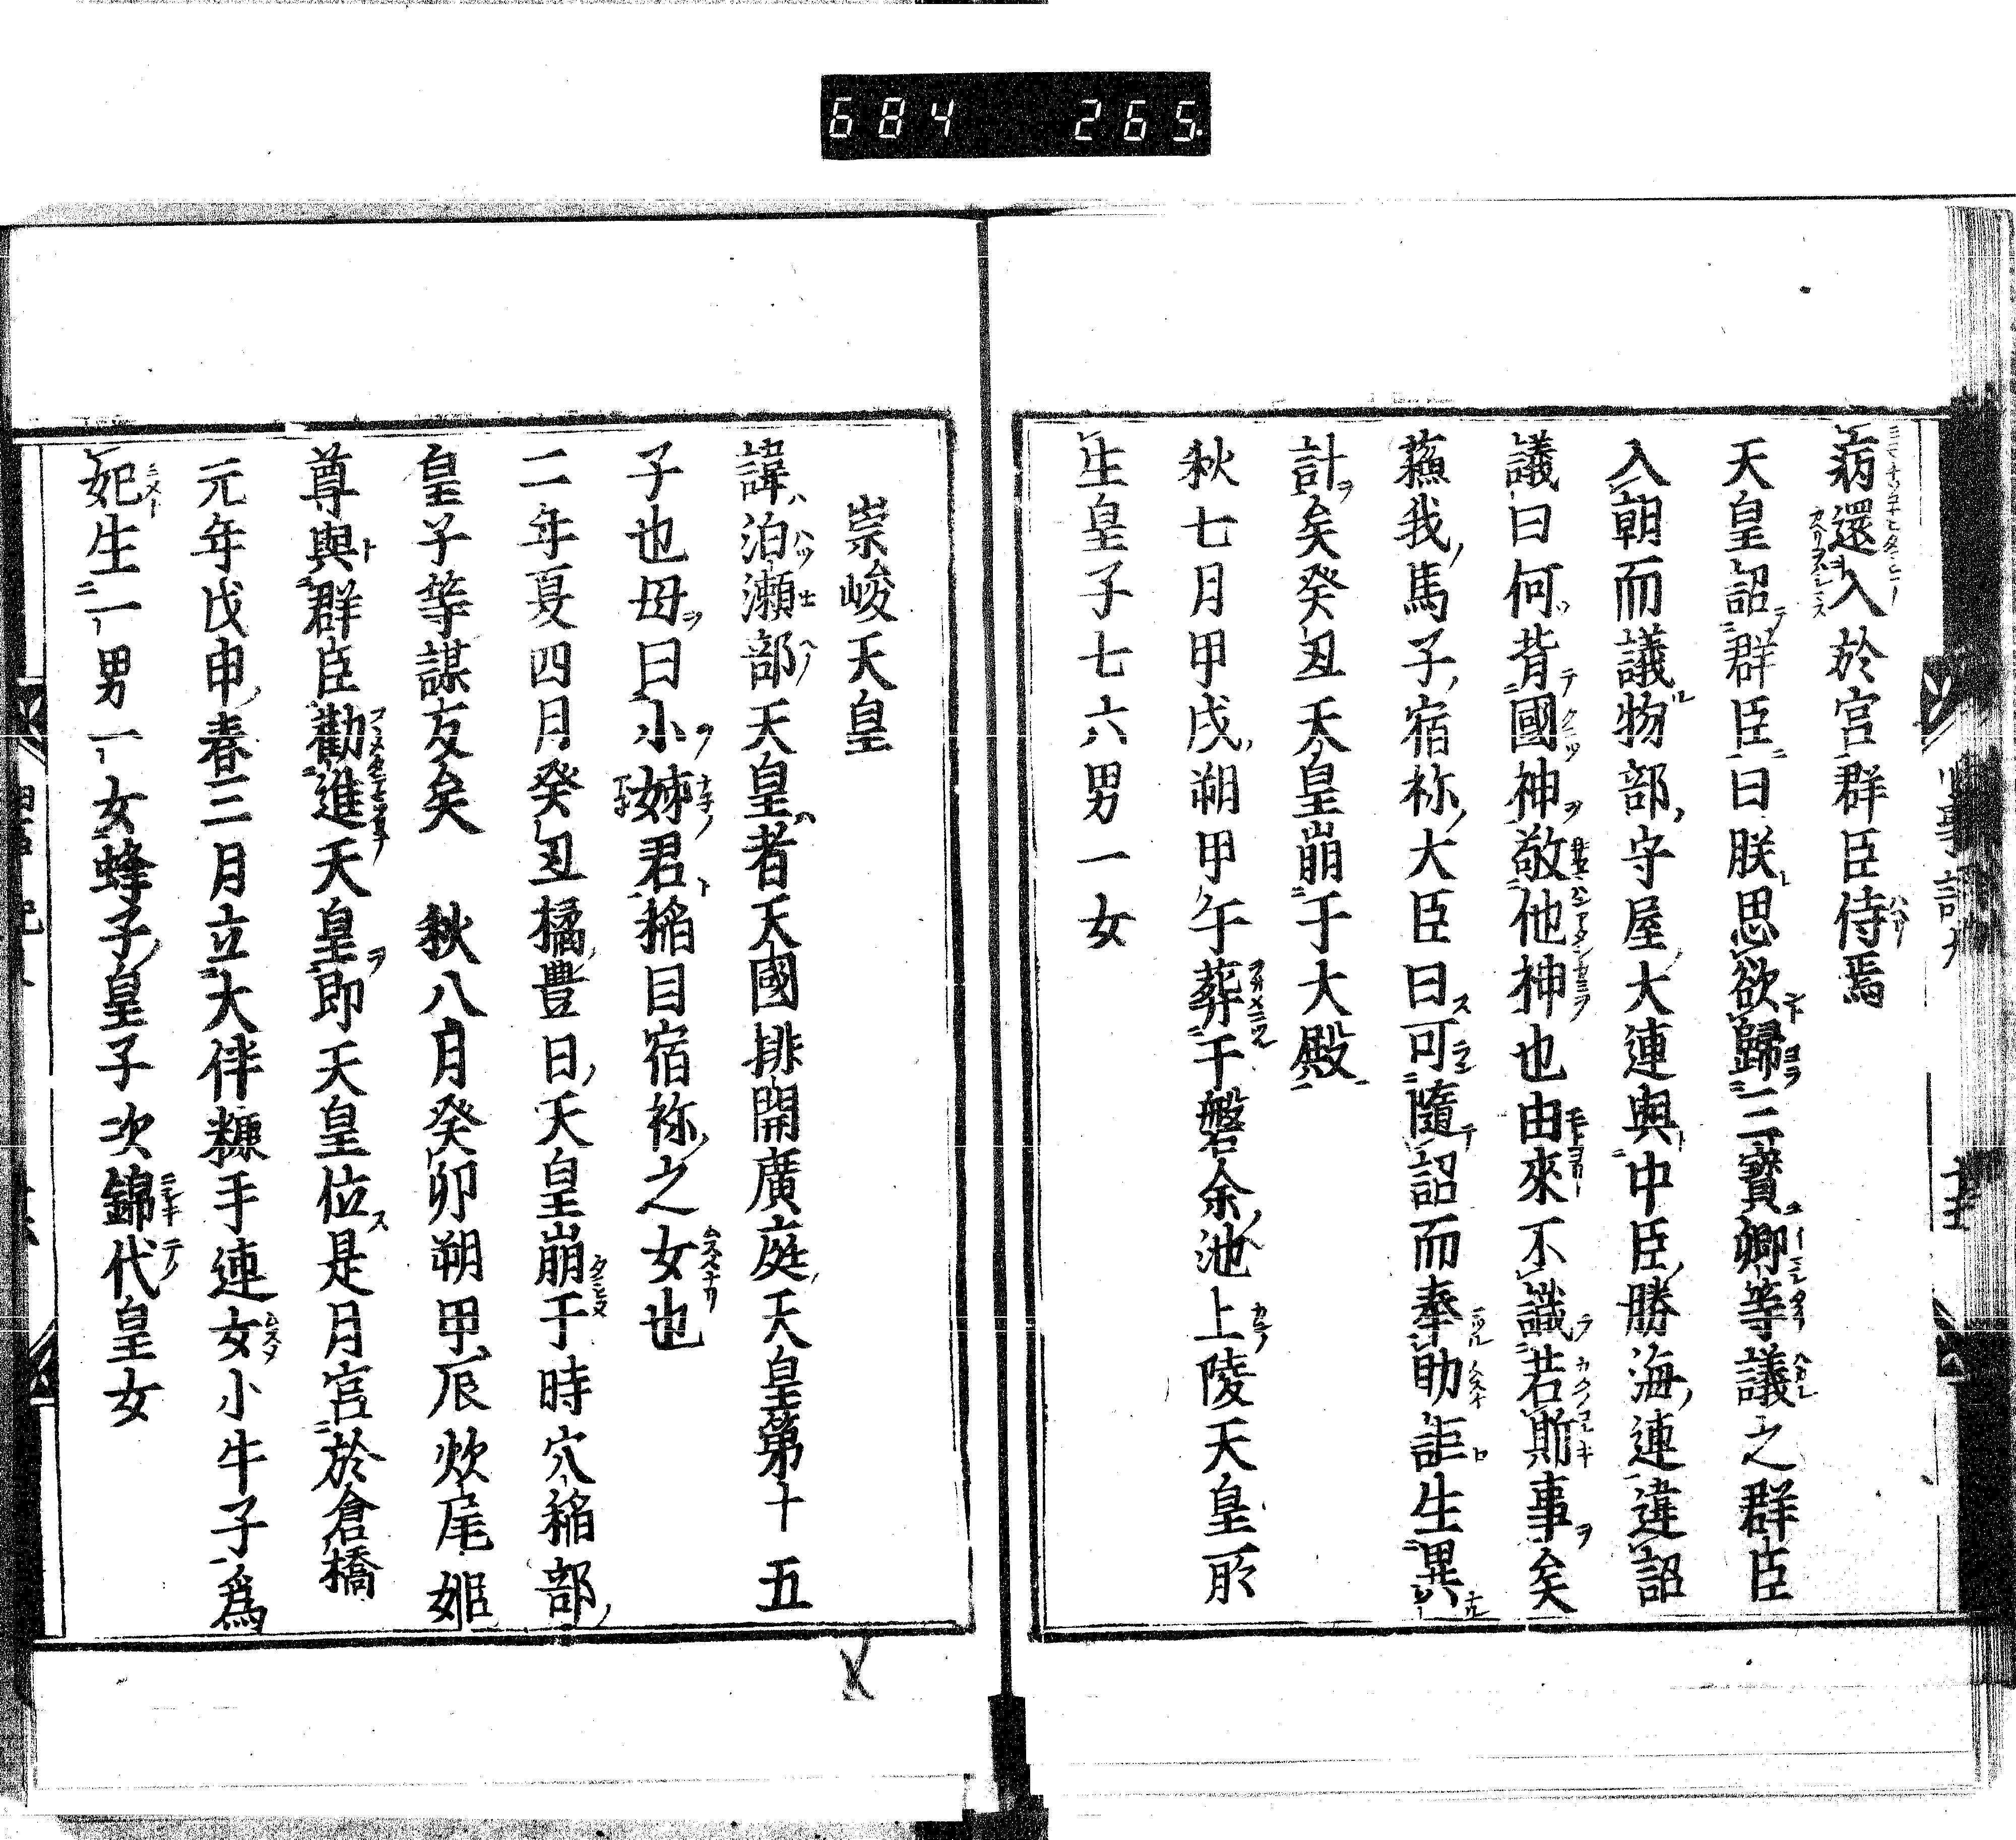 684 265
病還入於宮群臣侍焉
天皇詔群臣曰朕思欲歸三寶卿等議之群臣
入朝而議物部守屋大連與中臣勝海連違詔
議曰何背國神敬他神也由來不識若斯事矣
蘓我馬子宿祢大臣曰可隨詔而奉助詎生異
計矣癸丑天皇崩于大殿
秋七月甲戌朔甲午葬于磐余池上陵天皇所
生皇子七六男一女
崇峻天皇
諱泊瀬部天皇者天國排開廣庭天皇第十五
子也母曰小姊君稲目宿祢之女也
二年夏四月癸丑橘豊日天皇崩于時穴稲部
皇子等謀友矣 秋八月癸卯朔甲辰炊尾姫
尊與群臣勸進天皇即天皇位是月宮於倉橋
元年戊申春三月立大伴糠手連女小牛子為
妃生一男一女蜂子皇子次錦代皇女